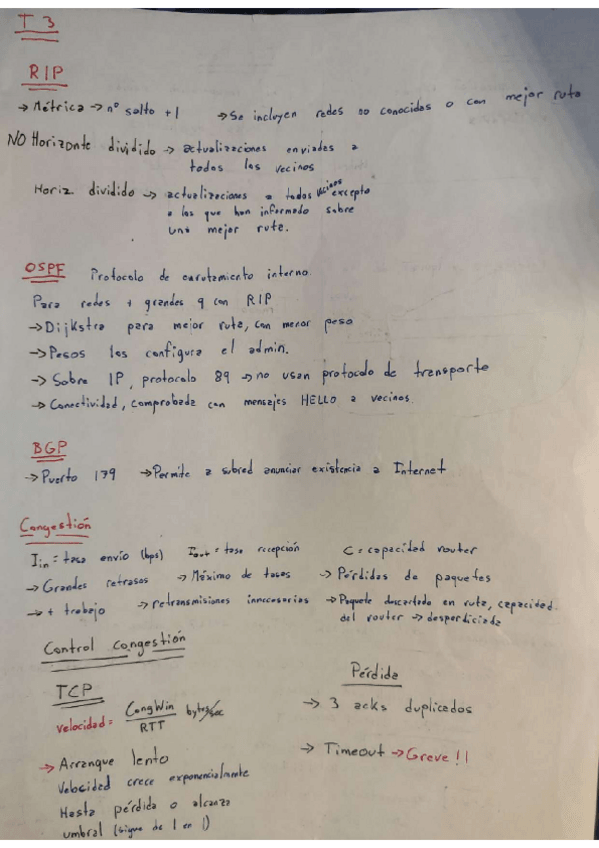 T 3
RIP
→ Métrica → nº salto +1 → Se incluyen redes no conocidas o con mejor ruta
NO Horizonte dividido → actualizaciones enviadas a
todos los vecinos
Horiz. dividido → actualizaciones a todos vecinos excepto
a los que han informado sobre
una mejor ruta.
OSPF Protocolo de enrutamiento interno.
Para redes + grandes q con RIP
→ Dijkstra para mejor ruta, con menor peso
→ Pesos los configura el admin.
→ Sobre IP, protocolo 89 → no usan protocolo de transporte
→ Conectividad, comprobada con mensajes HELLO a vecinos.
BGP
→ Puerto 179 → Permite a subred anunciar existencia a Internet
Congestión
Iin = tasa envío (bps) Iout = tasa recepción C = capacidad router
→ Grandes retrasos → Máximo de tasas → Pérdidas de paquetes
→ + trabajo → retransmisiones innecesarias → Paquete descartado en ruta, capacidad
del router → desperdiciada
Control congestión
TCP
velocidad = CongWin / RTT bytes/sec
→ Arranque lento
Velocidad crece exponencialmente
Hasta pérdida o alcanza
umbral (sigue de 1 en 1)
Pérdida
→ 3 acks duplicados
→ Timeout → Grave!!